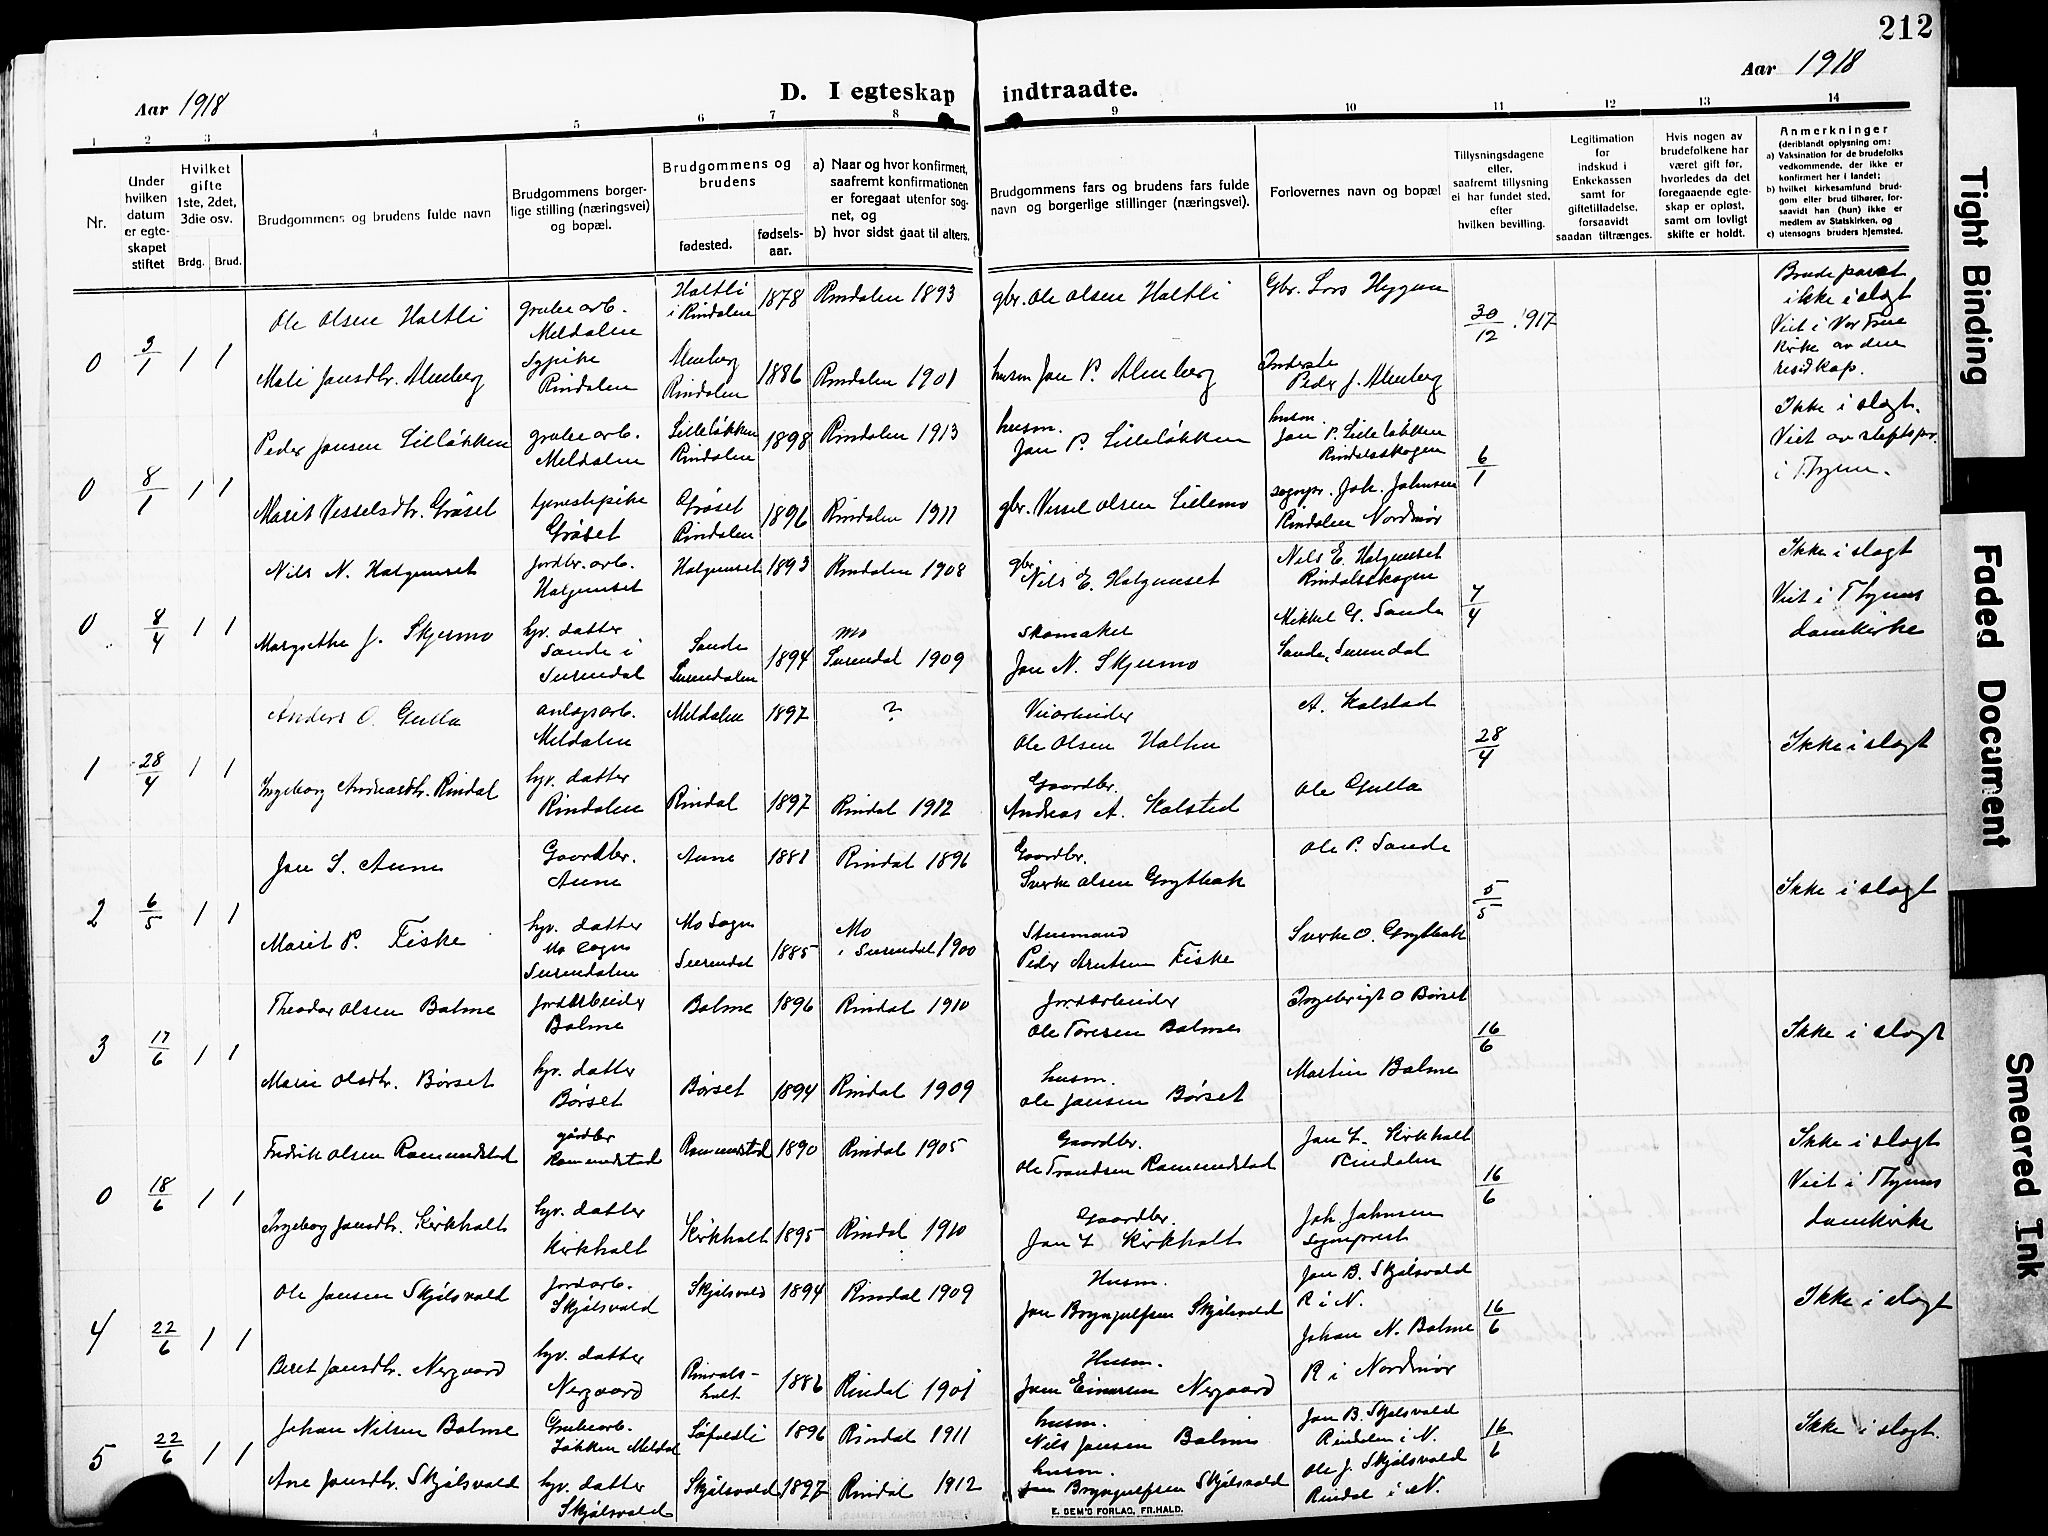 212
Aar 1918
D. I egteskap indtraadte.
Aar 1918
1 2 3 4 5 6 7 8 9 10 11 12 13 14
Nr.
Under hvilken datum er egteskapet stiftet
Hvilket gifte 1ste, 2det, 3die osv.
Brdg. Brud.
Brudgommens og brudens fulde navn
Brudgommens borgerlige stilling (næringsvei) og bopæl.
Brudgommens og brudens
fødested.
fødselsaar.
a) Naar og hvor konfirmert, saafremt konfirmationen er foregaat utenfor sognet, og
b) hvor sidst gaat til alters.
Brudgommens fars og brudens fars fulde navn og borgerlige stillinger (næringsvei).
Forlovernes navn og bopæl
Tillysningsdagene eller, saafremt tillysning ei har fundet sted, efter hvilken bevilling.
Legitimation for indskud i Enkekassen samt for giftetilladelse, forsaavidt saadan tiltrænges.
Hvis nogen av brudefolkene har været gift før, hvorledes da det foregaaende egteskap er opløst, samt om lovligt skifte er holdt.
Anmerkninger
(deriblandt oplysning om:
a) Vaksination for de brudefolks vedkommende, der ikke er konfirmert her i landet;
b) hvilket kirkesamfund brudgom eller brud tilhører, forsaavidt han (hun) ikke er medlem av Statskirken, og
c) utensogns bruders hjemsted.
0 3/1 1 1
Ole Olsen Haltli grubearb. Meldalen Haltli i Rindalen 1878 Rindalen 1893 gbr. Ole Olsen Haltli Gbr. Lars Heggem 30/12 1917
Mali Jonsdtr. Almberg Sypike Rindalen Almberg Rindalen 1886 Rindalen 1901 husm Jon P. Almberg Inderste Peder J. Almberg
Brudeparet ikke i slegt Viet i Vor Frue Kirke av den resid kap.
0 8/1 1 1
Peder Jonsen Lilleløkken grubearb. Meldalen Lilleløkken Rindalen 1898 Rindalen 1913 husm. Jon P. Lilleløkken husm. Jon P. Lilleløkken Rindalsskogen 6/1
Marit Vesselsdtr. Grøset tjenestepike Grøset Grøset Rindalen 1896 Rindalen 1911 gbr. Vessel Olsen Lillemo sognepr. Joh. Johnsen Rindalen Nordmør
Ikke i slegt. Viet av stiftspr. i Thjem.
0 8/4 1 1
Nils N. Halgunset jordbr. arb. Halgunset Halgunset 1893 Rindalen 1908 gbr. Nils E. Halgunset Nils E. Halgunset Rindalsskogen 7/4
Margrethe J. Skjermo hjv. datter Sande i Surendal Sande Surendalen 1894 Mo Surendal 1909 Skomaker Jon N. Skjermo Mikkel G. Sande Sande, Surendal
Ikke i slegt Viet i Thjems domkirke
1 28/4 1 1
Anders O. Gulla anlegsarb. Meldalen Meldalen 1897 ? Veiarbeider Ole Olsen Holten A. Kalstad 28/4
Ingeborg Andreasdtr. Rindal hjv. datter Rindalen Rindal 1897 Rindal 1912 Gaardbr. Andreas A. Kalstad Ole Gulla
Ikke i slegt
2 6/5 1 1
Jon S. Aune Gaardbr. Aune Aune 1881 Rindal 1896 Gaardbr. Sverke Olsen Grytbak Ole P. Sande 5/5
Marit P. Fiske hjv. datter Mo Sogn Surendalen Mo Sogn Surendal 1885 Mo i Surendal 1900 Stuemand Peder Arntsen Fiske Sverke O. Grytbak
Ikke i slegt
3 17/6 1 1
Theodor Olsen Bolme Jordarbeider Bolme Bolme 1896 Rindal 1910 Jordarbeider Ole Toresen Bolme Ingebrigt O Børset 16/6
Marie Olsdtr. Børset hjv. datter Børset Børset 1894 Rindal 1909 husm. Ole Jonsen Børset Martin Bolme
Ikke i slegt
0 18/6 1 1
Fredrik Olsen Romundstad gårdbr Romundstad Romundstad 1890 Rindal 1905 Gaardbr. Ole Trondsen Romundstad Jon L. Kirkholt Rindalen 16/6
Ingeborg Jonsdtr. Kirkholt hjv. datter Kirkholt Kirkholt 1895 Rindal 1910 Gaardbr. Jon L Kirkholt Joh. Johnsen Sogneprest
Ikke i slegt Viet i Thjems domkirke
4 22/6 1 1
Ole Jonsen Skjølsvold Jordarb. Skjølsvold Skjølsvold 1894 Rindal 1909 Husm. Jon Brynjulfsen Skjølsvold Jon B. Skjølsvold R i N. 16/6
Beret Jonsdtr. Nergaard hjv. datter Nergaard Rindalsholt 1886 Rindal 1901 Husm. Jon Einarsen Nergaard Johan N. Bolme R i Nordmør
Ikke i slegt
5 22/6 1 1
Johan Nilsen Bolme Grubearb. Løkken Meldal Løfaldli 1896 Rindal 1911 husm. Nils Jonsen Bolme Jon B. Skjølsvold Rindalen i N. 16/6
Ane Jonsdtr. Skjølsvold hjv. datter Skjølsvold Skjølsvold 1897 Rindal 1912 husm. Jon Brynjulfsen Skjølsvold Ole J. Skjølsvold Rindal i N.
Ikke i slegt.
E. SEM'S FORLAG, FR.HALD.
Tight Binding
Faded Document
Smeared Ink